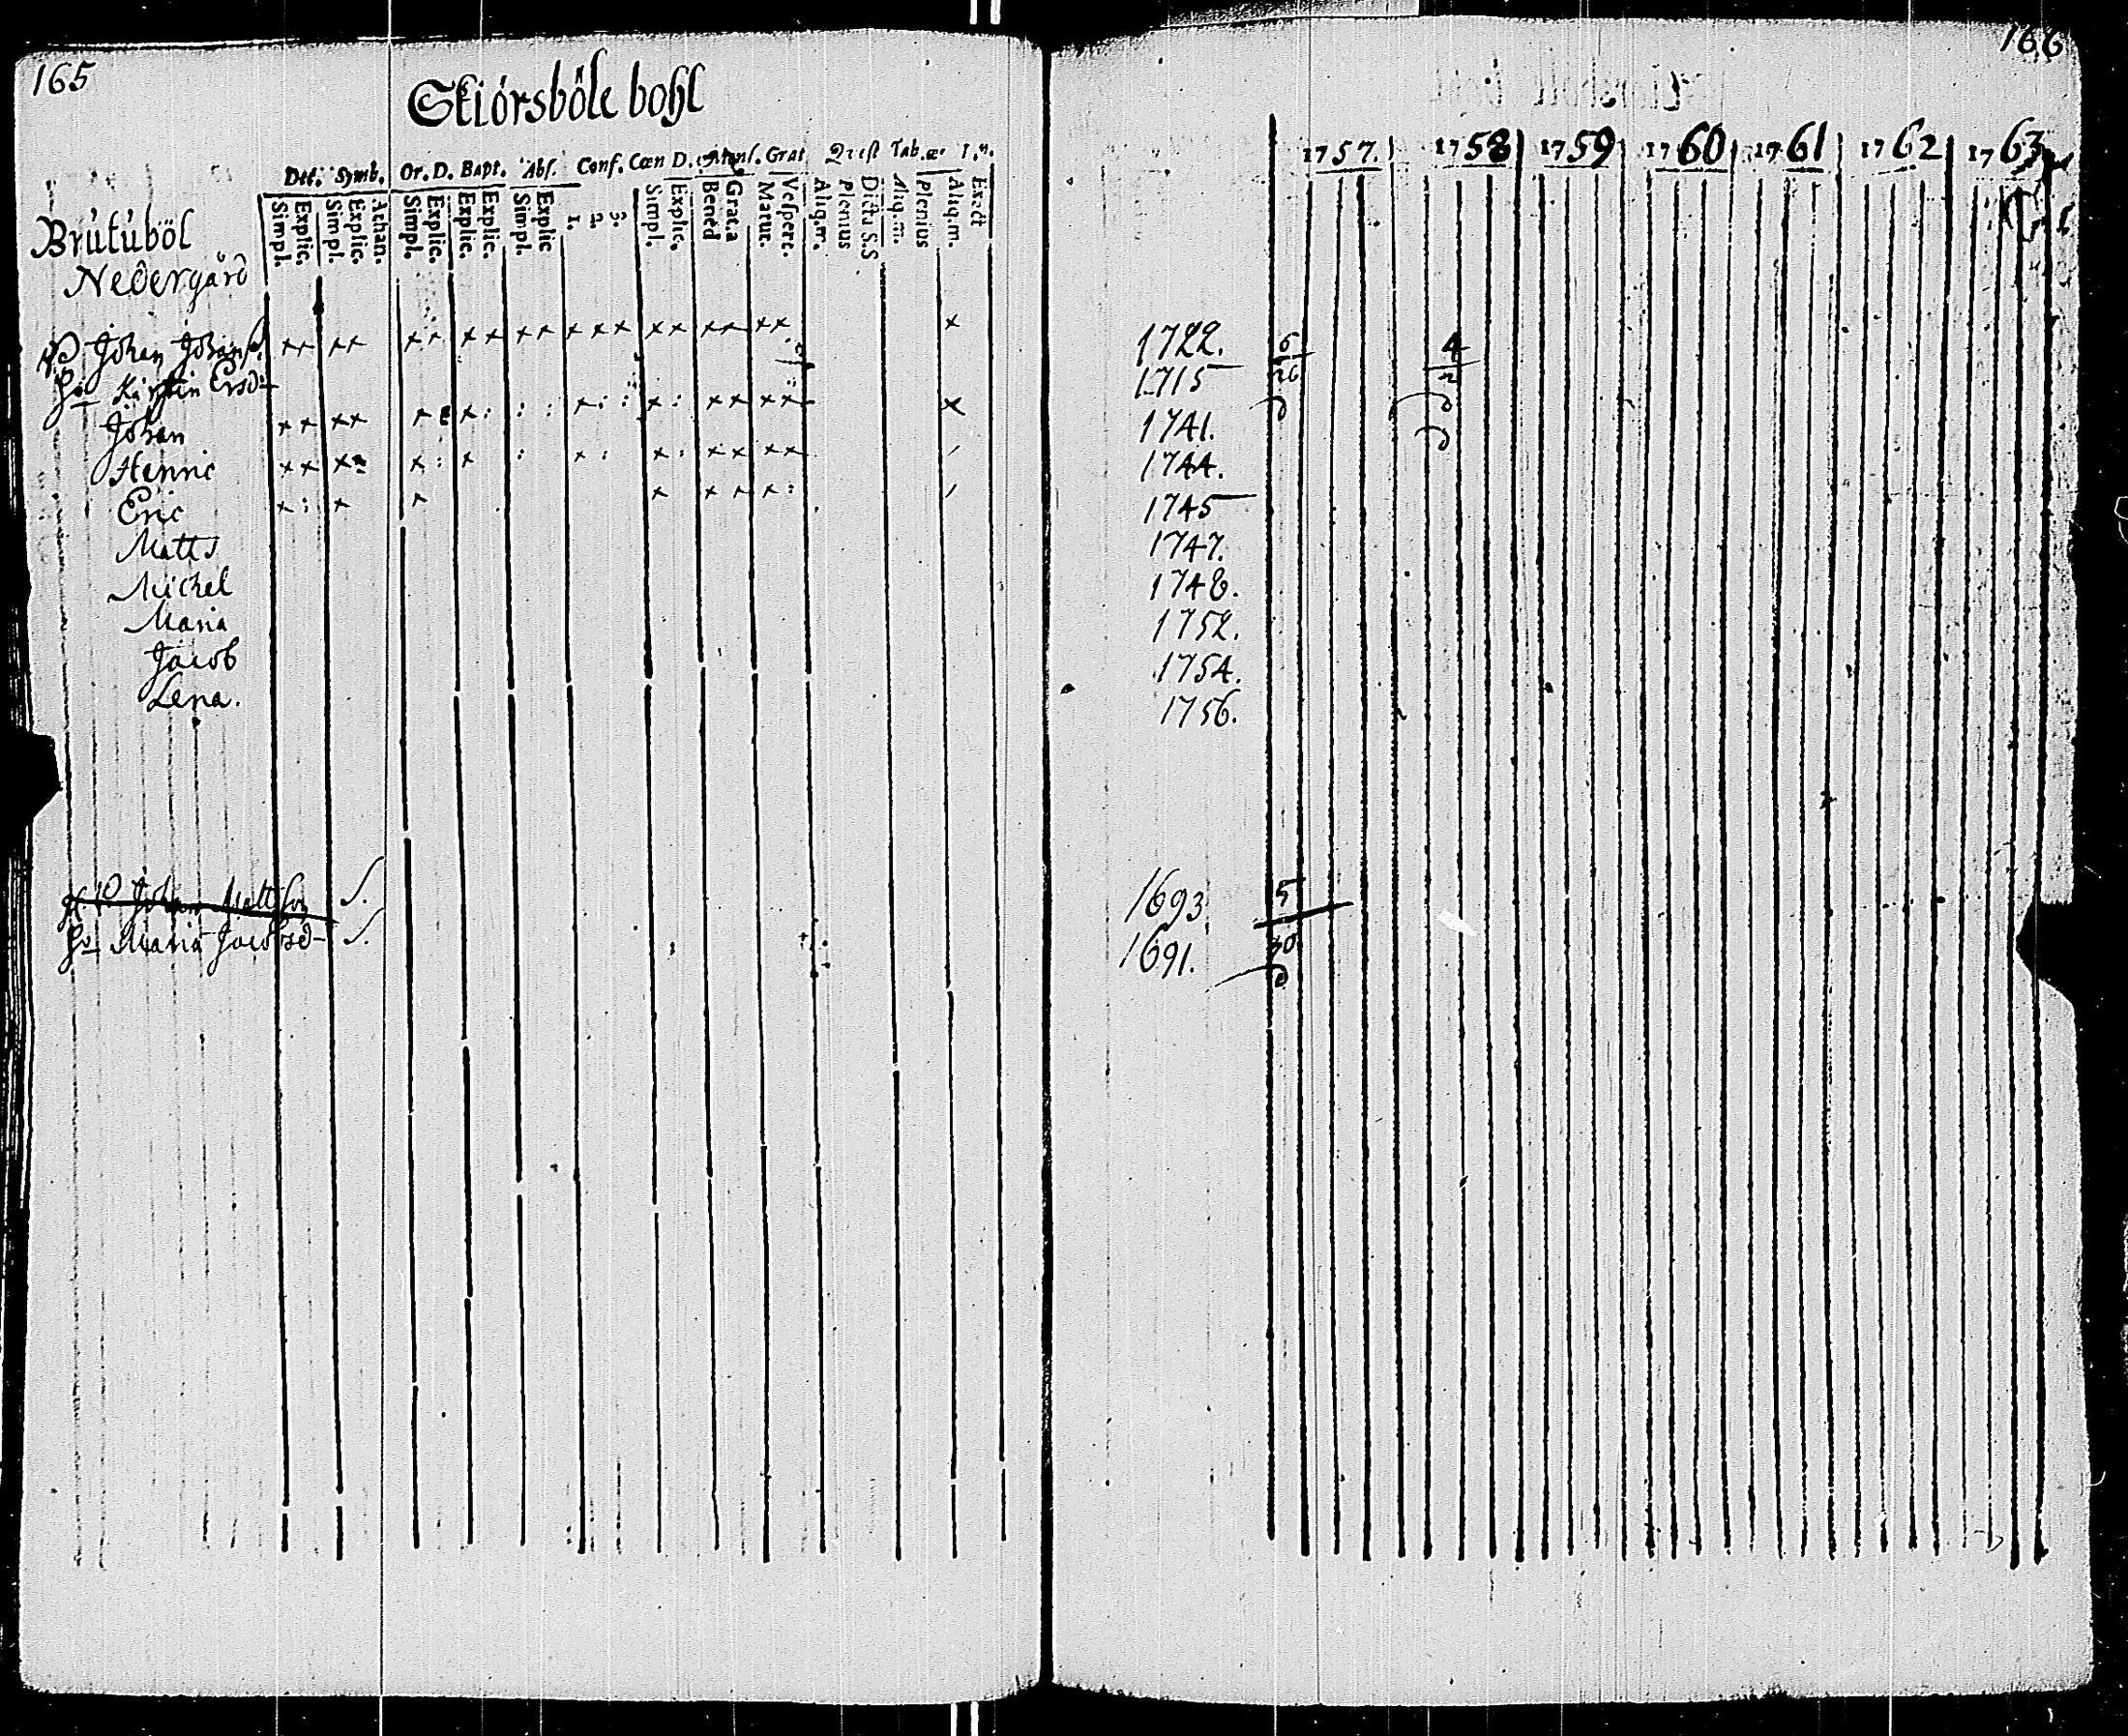 165
Skiörsböle bohl
Dec. Symb. Or. D. Bapt. Abs. Conf. Cœn D. Mens. Grat Quæst Tab. œ
Simpl. Explic. Simpl. Explic. Athan. Simpl. Explic. Explic. Explic. Simpl. Explic 1. 2. 3. Simpl. Explic. Bened Grat.a Matut. Vespert. Aliq.m. Plenius Dicta S.S Aliq.m. Plenius Aliq.m. Exact
Brutuböl
Nedergård
Johan Johanss.
Hu Kirstin Ersd
Johan
Henric
Eric
Matts
Michel
Maria
Jacob
Lena.
Johan Mattson S.
Hu Maria Jacobsd S.
166
1757. 1758 1759 1760 1761 1762 1763
1722. 6 4
1715 26 2
1741.
1744.
1745
1747.
1748.
1752.
1754.
1756.
1693 5
1691. 30